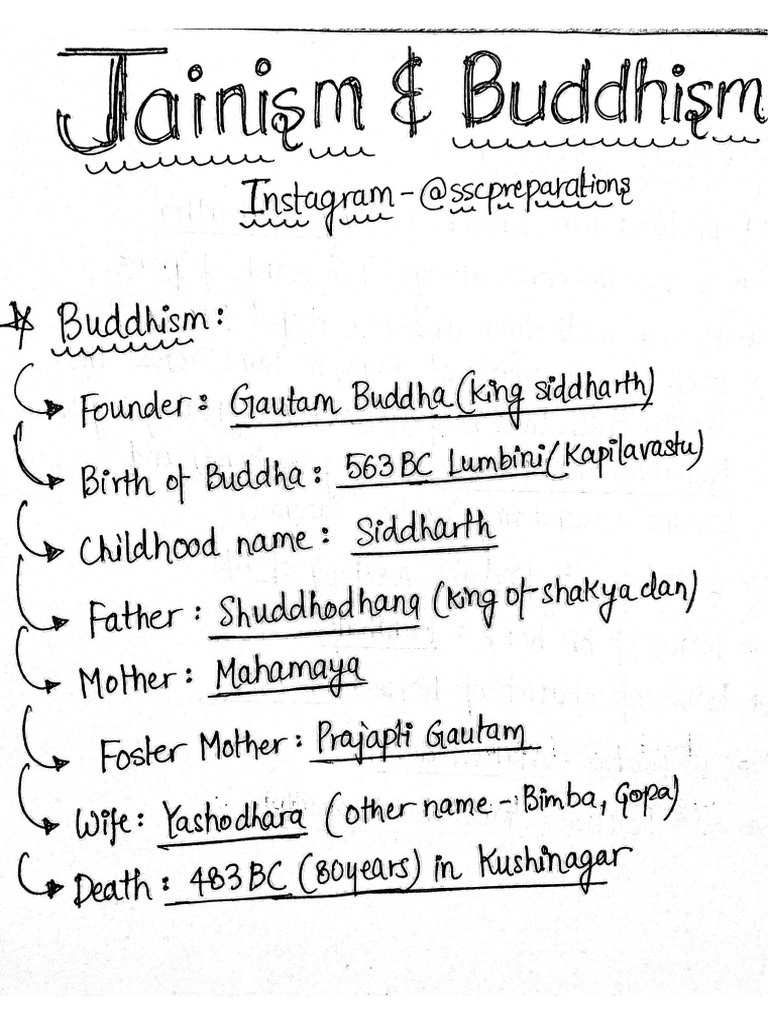 Jainism & Buddhism
Instagram - @sscpreparations
Buddhism:
Founder: Gautam Buddha (King Siddharth)
Birth of Buddha: 563 BC Lumbini (Kapilavastu)
Childhood name: Siddharth
Father: Shuddhodhana (King of shakya clan)
Mother: Mahamaya
Foster Mother: Prajapti Gautam
Wife: Yashodhara (other name - Bimba, Gopa)
Death: 483 BC (80 years) in Kushinagar